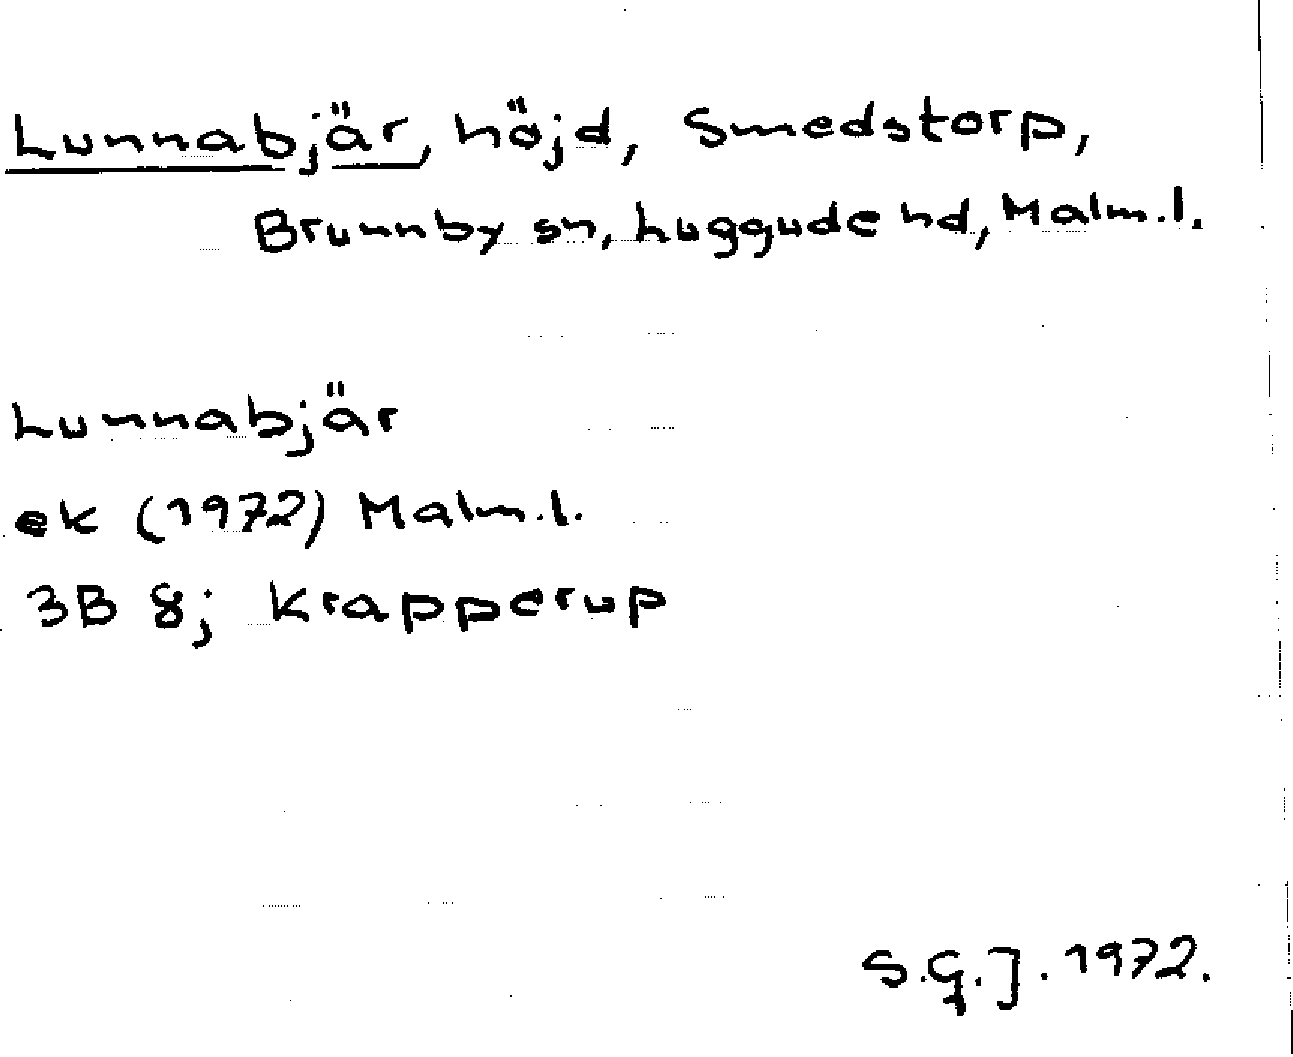 Lunnabjär, höjd, Smedstorp,
Brunnby sn, Luggude hd, Malm.l.
Lunnabjär
ek (1972) Malm.l.
3B 8j Krapperup
S.G.J. 1972.